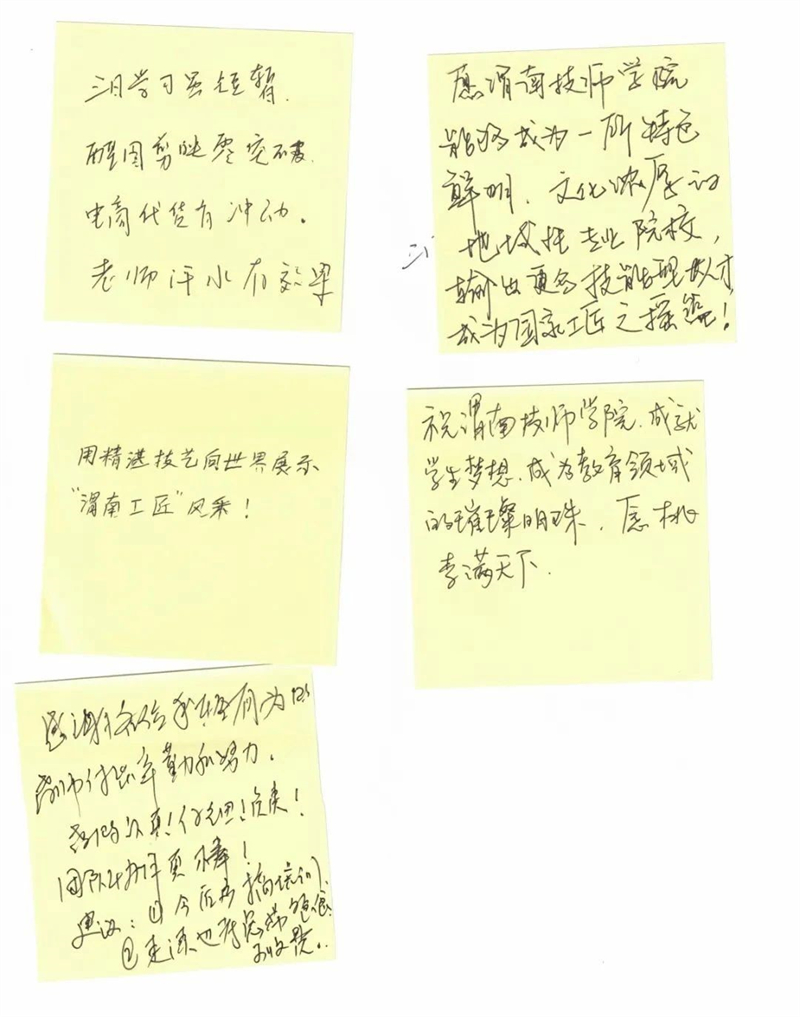 三日学习虽短暂.
醒图剪映零突破.
电商代货有冲动。
老师汗水有效果
愿渭南技师学院
能够成为一所特色
鲜明、文化浓厚的
地域性专业院校，
输出更多技能型人才
成为国家工匠之摇篮！
用精湛技艺向世界展示
“渭南工匠”风采！
祝渭南技师学院.成就
学生梦想.成为教育领域
的璀璨明珠，愿桃
李满天下.
感谢
付出辛勤和努力。
认真！仔细！负责！
团队
建议：① 今后多搞培训
②